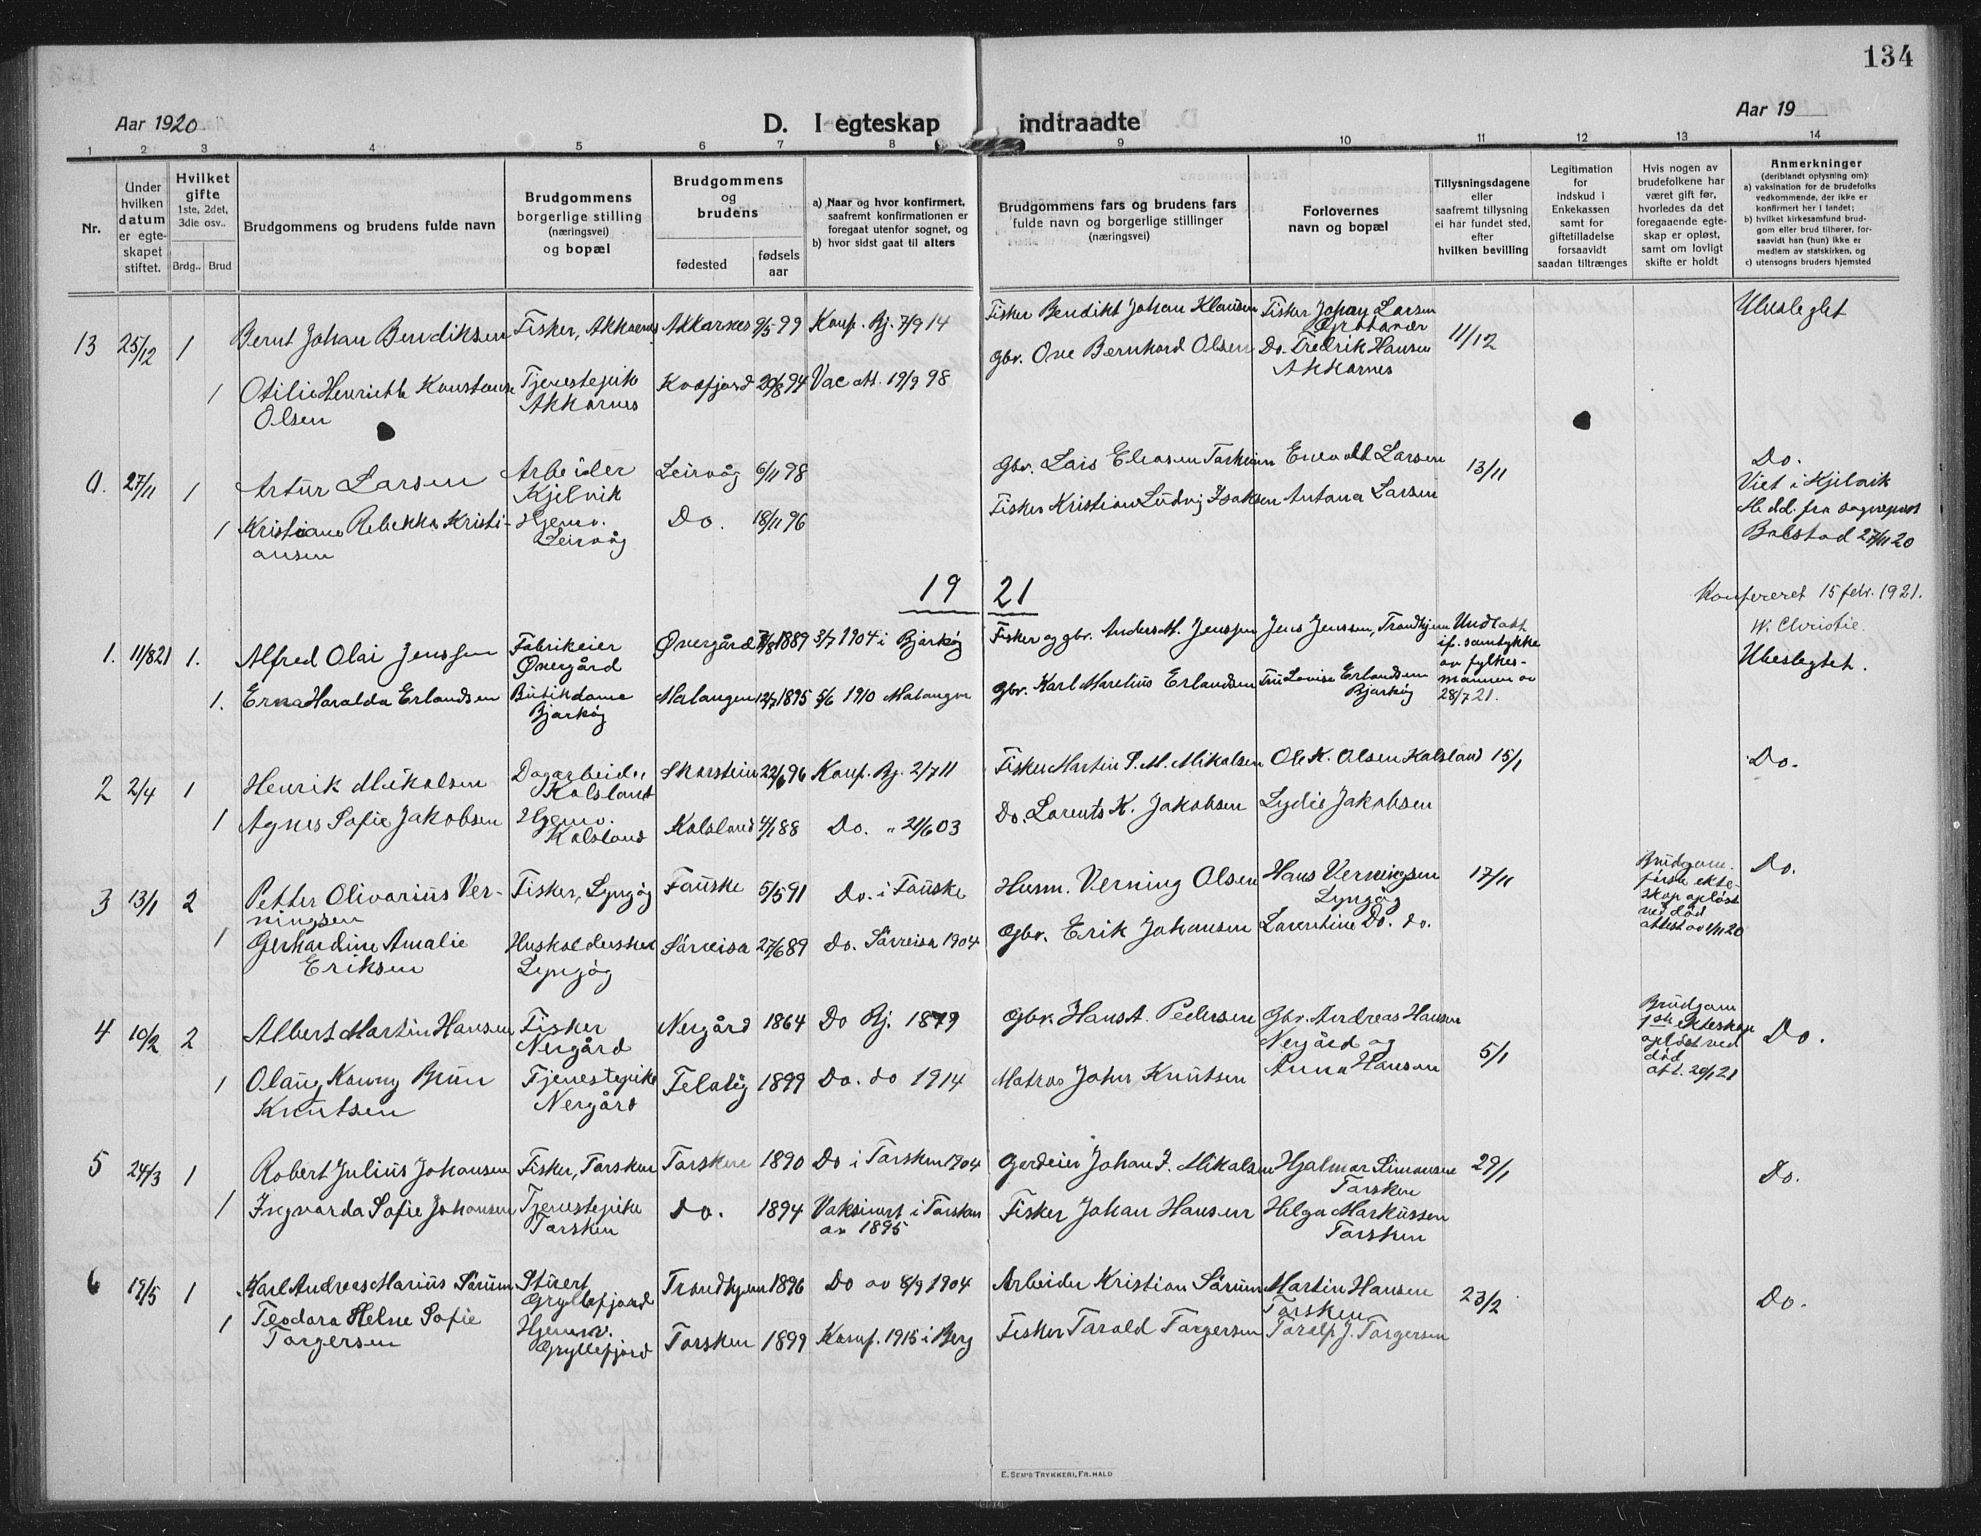 134
Aar 1920
D. I egteskap indtraadte
Aar 19
1 2 3 4 5 6 7 8 9 10 11 12 13 14
Nr.
Under hvilken datum er egteskapet stiftet.
Hvilket gifte
1ste, 2det, 3die osv..
Brdg.. Brud
Brudgommens og brudens fulde navn
Brudgommens borgerlige stilling (næringsvei) og bopæl
Brudgommens og brudens
fødested
fødsels aar
a) Naar og hvor konfirmert, saafremt konfirmationen er foregaat utenfor sognet, og
b) hvor sidst gaat til alters
Brudgommens fars og brudens fars fulde navn og borgerlige stillinger (næringsvei)
Forlovernes navn og bopæl
Tillysningsdagene eller saafremt tillysning ei har fundet sted, efter hvilken bevilling
Legitimation for indskud i Enkekassen samt for giftetilladelse forsaavidt saadan tiltrænges
Hvis nogen av brudefolkene har været gift før, hvorledes da det foregaaende egteskap er opløst, samt om lovligt skifte er holdt
Anmerkninger
(deriblandt oplysning om):
a) vaksination for de brudefolks vedkommende, der ikke er konfirmert her i landet;
b) hvilket kirkesamfund brudgom eller brud tilhører, forsaavidt han (hun) ikke er medlem av statskirken, og
c) utensogns bruders hjemsted
13 25/12 1 Bernt Johan Bendiksen Fisker, Akkarnes Akkarnes 9/5 99 Konf. Bj. 7/9 14 Fisker Bendikt Johan Klausen Fisker Johan Larsen 11/12 Ubeslegtet
1 Otilie Henriette Konstanse Olsen Tjenestepike Akkarnes Kvæfjord 20/8 94 Vac att. 19/9 98 Gbr. Ove Bernhard Olsen Do. Fredrik Hansen Akkarnes
27/11 1 Artur Larsen Arbeider Kjelvik Leirvåg 6/11 98 Gbr. Lars Eliasen Enevold Larsen 13/11 Do.
Viet i Kjelvik
Medd. fra sognepr.
27/11 20
1 Kristiane Rebekka Kristiansen Hjemv. Leirvåg Do. 18/11 96 Fisker Kristian Ludvig Isaksen Antana Larsen
19 21
Konfereret 15 febr. 1921.
W. Christie.
1. 11/8 21 1. Alfred Olai Jenssen Fabrikeier Øvergård Øvergård 1889 3/7 1904 i Bjarkøy Fisker og gbr. Anders M. Jenssen Jens Jenssen, Trondhjem Undlatt if. samtykke av fylkesmannen av 28/7 21. Ubeslegtet.
1. Erna Haralda Erlandsen Butikdame Bjarkøy Malangen 12/7 1895 5/6 1910 Malangen Gbr. Karl Marelius Erlandsen Fru Lovise Erlandsen Bjarkøy
2 2/4 1 Henrik Mikalsen Dagarbeider Kalsland Skarstein 22/6 96 Konf. Bj. 2/7 11 Fisker Martin P. M. Mikalsen Ole K. Olsen Kalsland 15/1 Do.
1 Agnes Sofie Jakobsen Hjemv. Kalsland Kalsland 4/1 88 Do. " 21/6 03 Do. Lorents K. Jakobsen Lydie Jakobsen
3 13/1 2 Petter Olivarius Verningsen Fisker, Lyngøy Fauske 5/5 91 Do. i Fauske Husm. Verning Olsen Hans Verningsen Lyngøy 17/11 Brudgom. første ekteskap opløst ved død attest av 1/11 20 Do.
1 Gerhardine Amalie Eriksen Husholderske Lyngøy Sørreisa 27/6 89 Do. Sørreisa 1904 Gbr. Erik Johansen Laurentine Do. do.
4 10/2 2 Albert Martin Hansen Fisker Nergård Nergård 1864 Do Bj. 1879 Gbr. Hans A. Pedersen Gbr. Andreas Hansen Nergård og Anna Hansen 5/1 Brudgom 1ste ekteskap opløst ved død att. 20/1 21 Do.
1 Olaug Konny Brun Knutsen Tjenestepike Nergård 1899 Do. do 1914 Matros Johs Knutsen
5 24/3 1 Robert Julius Johansen Fisker, Torsken Torsken 1890 Do i Torsken 1904 Gårdeier Johan J. Mikalsen Hjalmar Simonsen Torsken 29/1 Do.
1 Ingvarda Sofie Johansen Tjenestepike Torsken Do. 1894 Vaksinert i Torsken av 1895 Fisker Johan Hansen Helga Markussen Torsken
6 19/5 1 Karl Andreas Marius Sørum Stuert Gryllefjord Trondhjem 1896 Do av 8/9 1904 Arbeider Kristian Sørum Martin Hansen Torsken 23/2 Do.
1 Teodora Helne Sofie Torgersen Hjemv. Gryllefjord Torsken 1899 Konf. 1915 i Berg Fisker Tarald Torgersen Toralf J. Torgersen
E. SEM'S TRYKKERI, FR. HALD